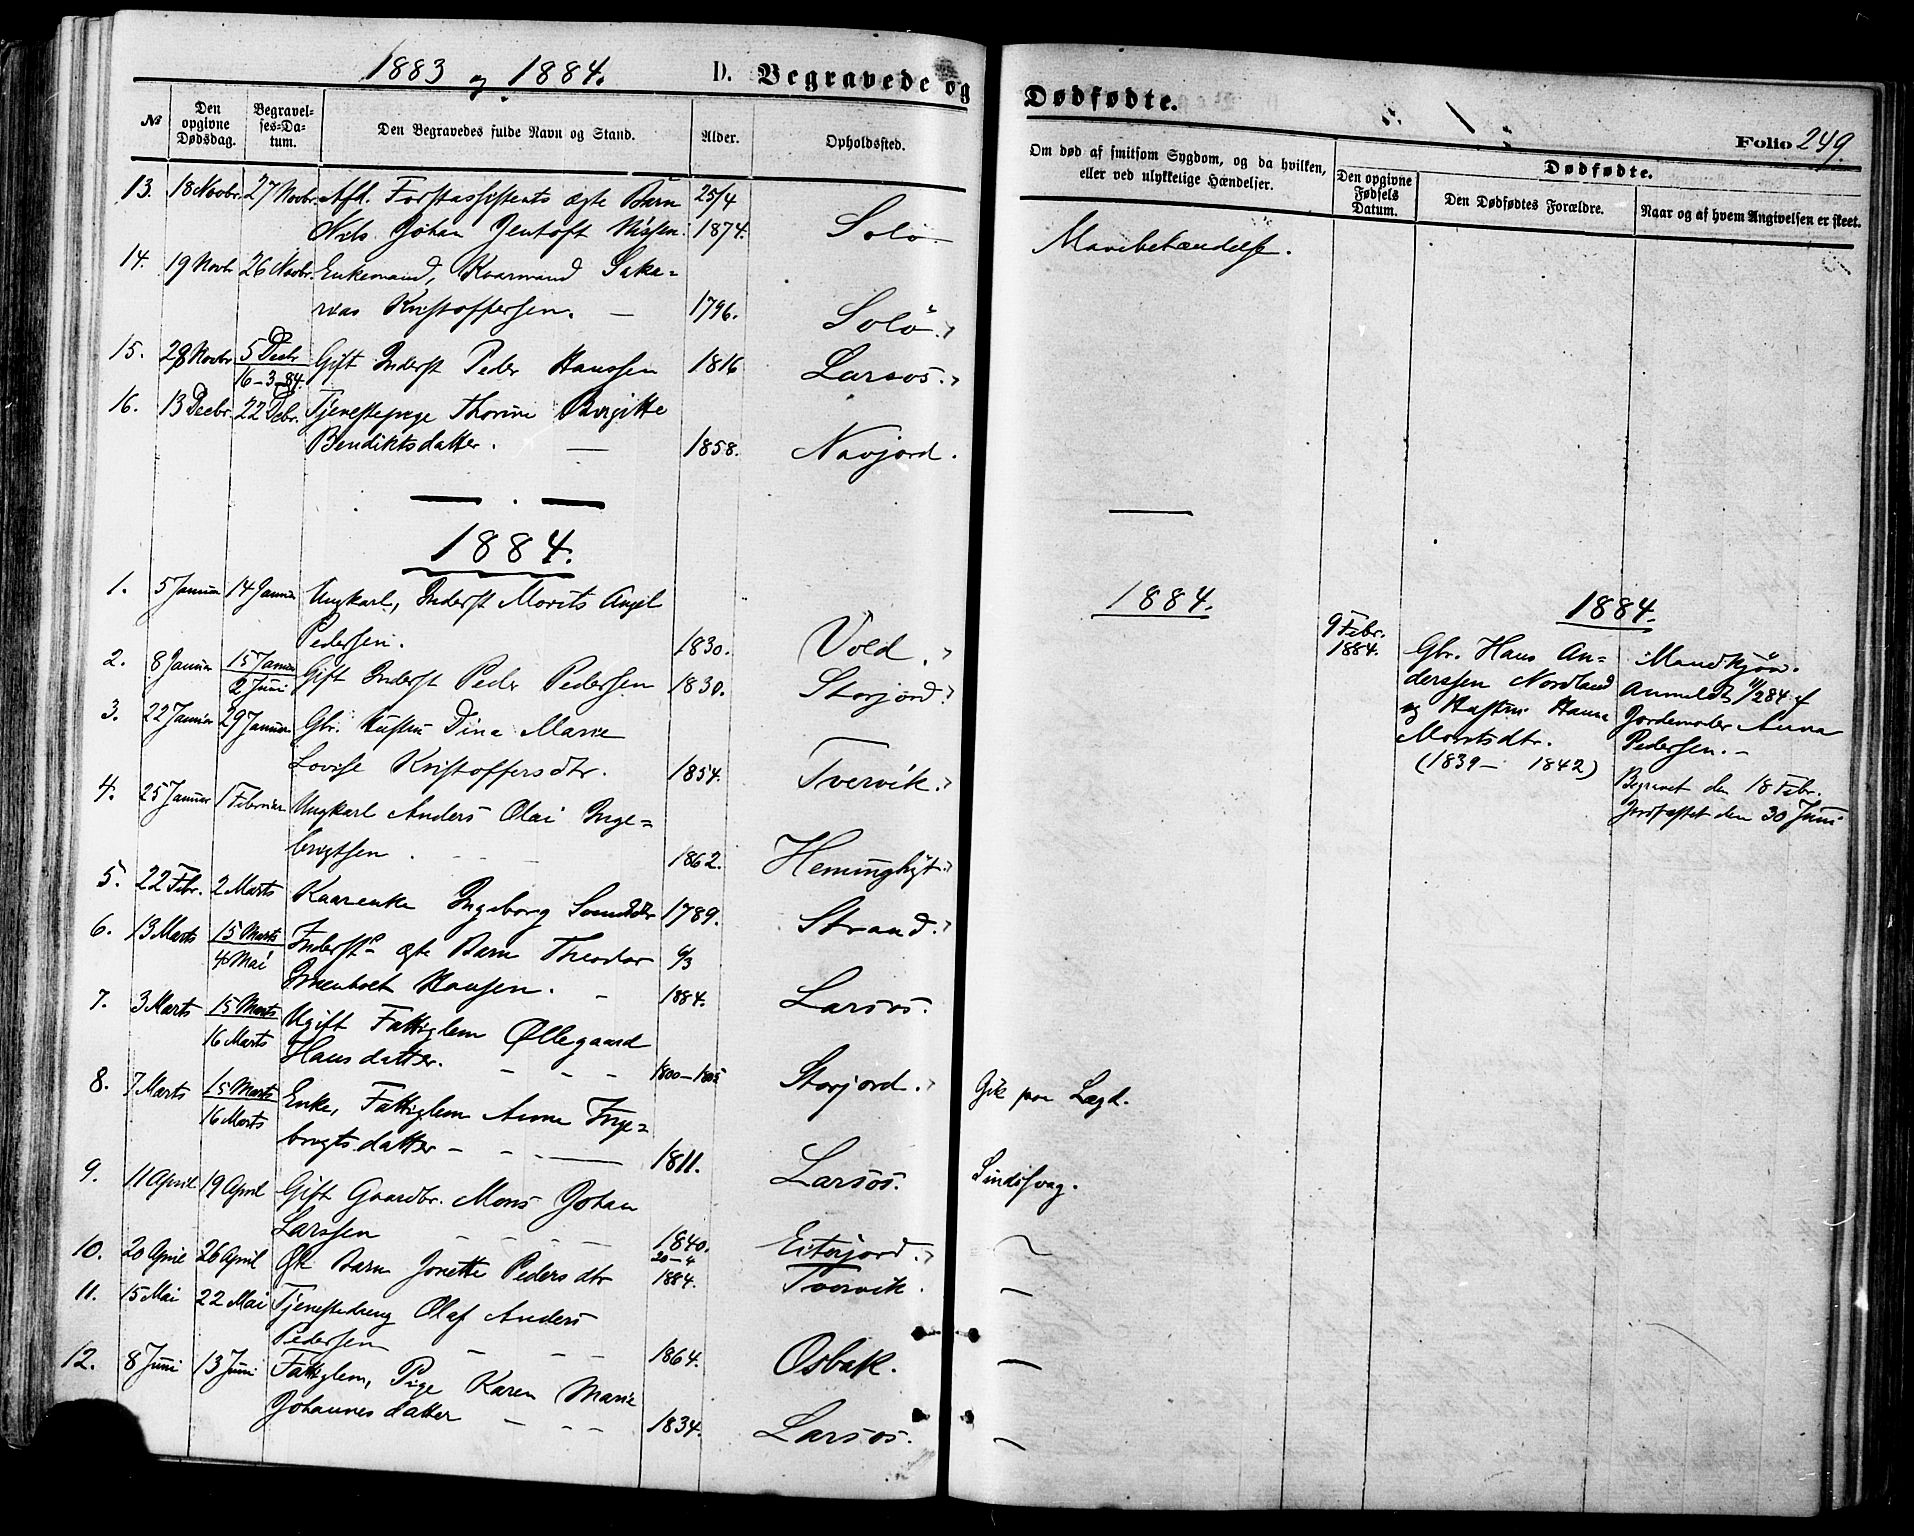 1883 og 1884.
D. Begravede og
№
Den opgivne Dødsdag.
Begravel-ses-Da-tum.
Den Begravedes fulde Navn og Stand.
Alder.
Opholdssted.
13. 18 Novbr. 27 Novbr. Afd. Forstassistents ægte Barn 25/4
Nils Johan Jentoft Nissen. 1874. Solø
14. 19 Novbr 26 Novbr. Enkemand, Kaarmand Saka=
rias Kristoffersen. — 1796. Solø.
15. 28 Novbr 5 Decbr Gift Inderst Peder Hanssen 1816 Larsos.
16-3-84.
16. 13 Decbr. 22 Debr. Tjenestepige Thorine Birgitte
Bendiktsdatter. — 1858. Navjord.
1884.
1. 5 Januar 14 Januar Ungkarl, Inderst Morits Angel
Pedersen. 1830. Vold.
2. 8 Januar 15 Januar Gift Inderst Peder Pedersen 1830. Storjord.
2 Juni
3. 22 Januar 29 Januar Gbr. Hustru Dina Marie
Lovise Kristoffersdtr. 1854. Tvervik.
4. 25 Januar 1 Februar Ungkarl Anders Olai Inge=
brigtsen. 1862.
5. 22 Febr. 2 Marts Kaarenke Ingeborg 1789. Strand.
6. 13 Marts 15 Marts Inderst ægte Barn Theodor 6/3
4 Mai
Hansen. 1884. Larsos.
7. 3 Marts 15 Marts Ugift Fattiglem Øllegaard
16 Marts Hansdatter. 1800-1805 Storjord.
8. 7 Marts 15 Marts Enke, Fattiglem Anne Inge=
16 Marts brigtsdatter — 1811. Larsos.
9. 11 April 19 April Gift Gaardbr. Mons Johan
Larssen 1840. Eiterjord.
10. 20 April 26 April Øk Barn Jonette Pedersdtr 20-4 1884. Tvervik.
11. 15 Mai 22 Mai Tjenestedreng Olaf Anders
Pedersen 1864. Osbak.
12. 8 Juni 13 Juni Fattiglem, Pige Karen Marie
Johannesdatter 1834. Larsos.
Dødfødte.
Folio 249.
Om død af smitsom Sygdom, og da hvilken,
eller ved ulykkelige Hændelser.
Dødfødte.
Den opgivne Fødsels Datum.
Den Dødfødtes Forældre.
Naar og af hvem Angivelsen er skeet.
Mavebetændelse.
1884.
1884.
9 Febr.
1884.
Gbr. Hans An=
derssen Nordland
og Hustru Hanna
Moritsdtr.
(1839 — 1842)
Mandkjøn.
Anmeldt 11/2 84 af
Jordemoder Anna
Pedersen. —
Begravet den 18 Febr.
Jordfæstet den 30 Juni
Gik paa Lægd.
Sindssvag.